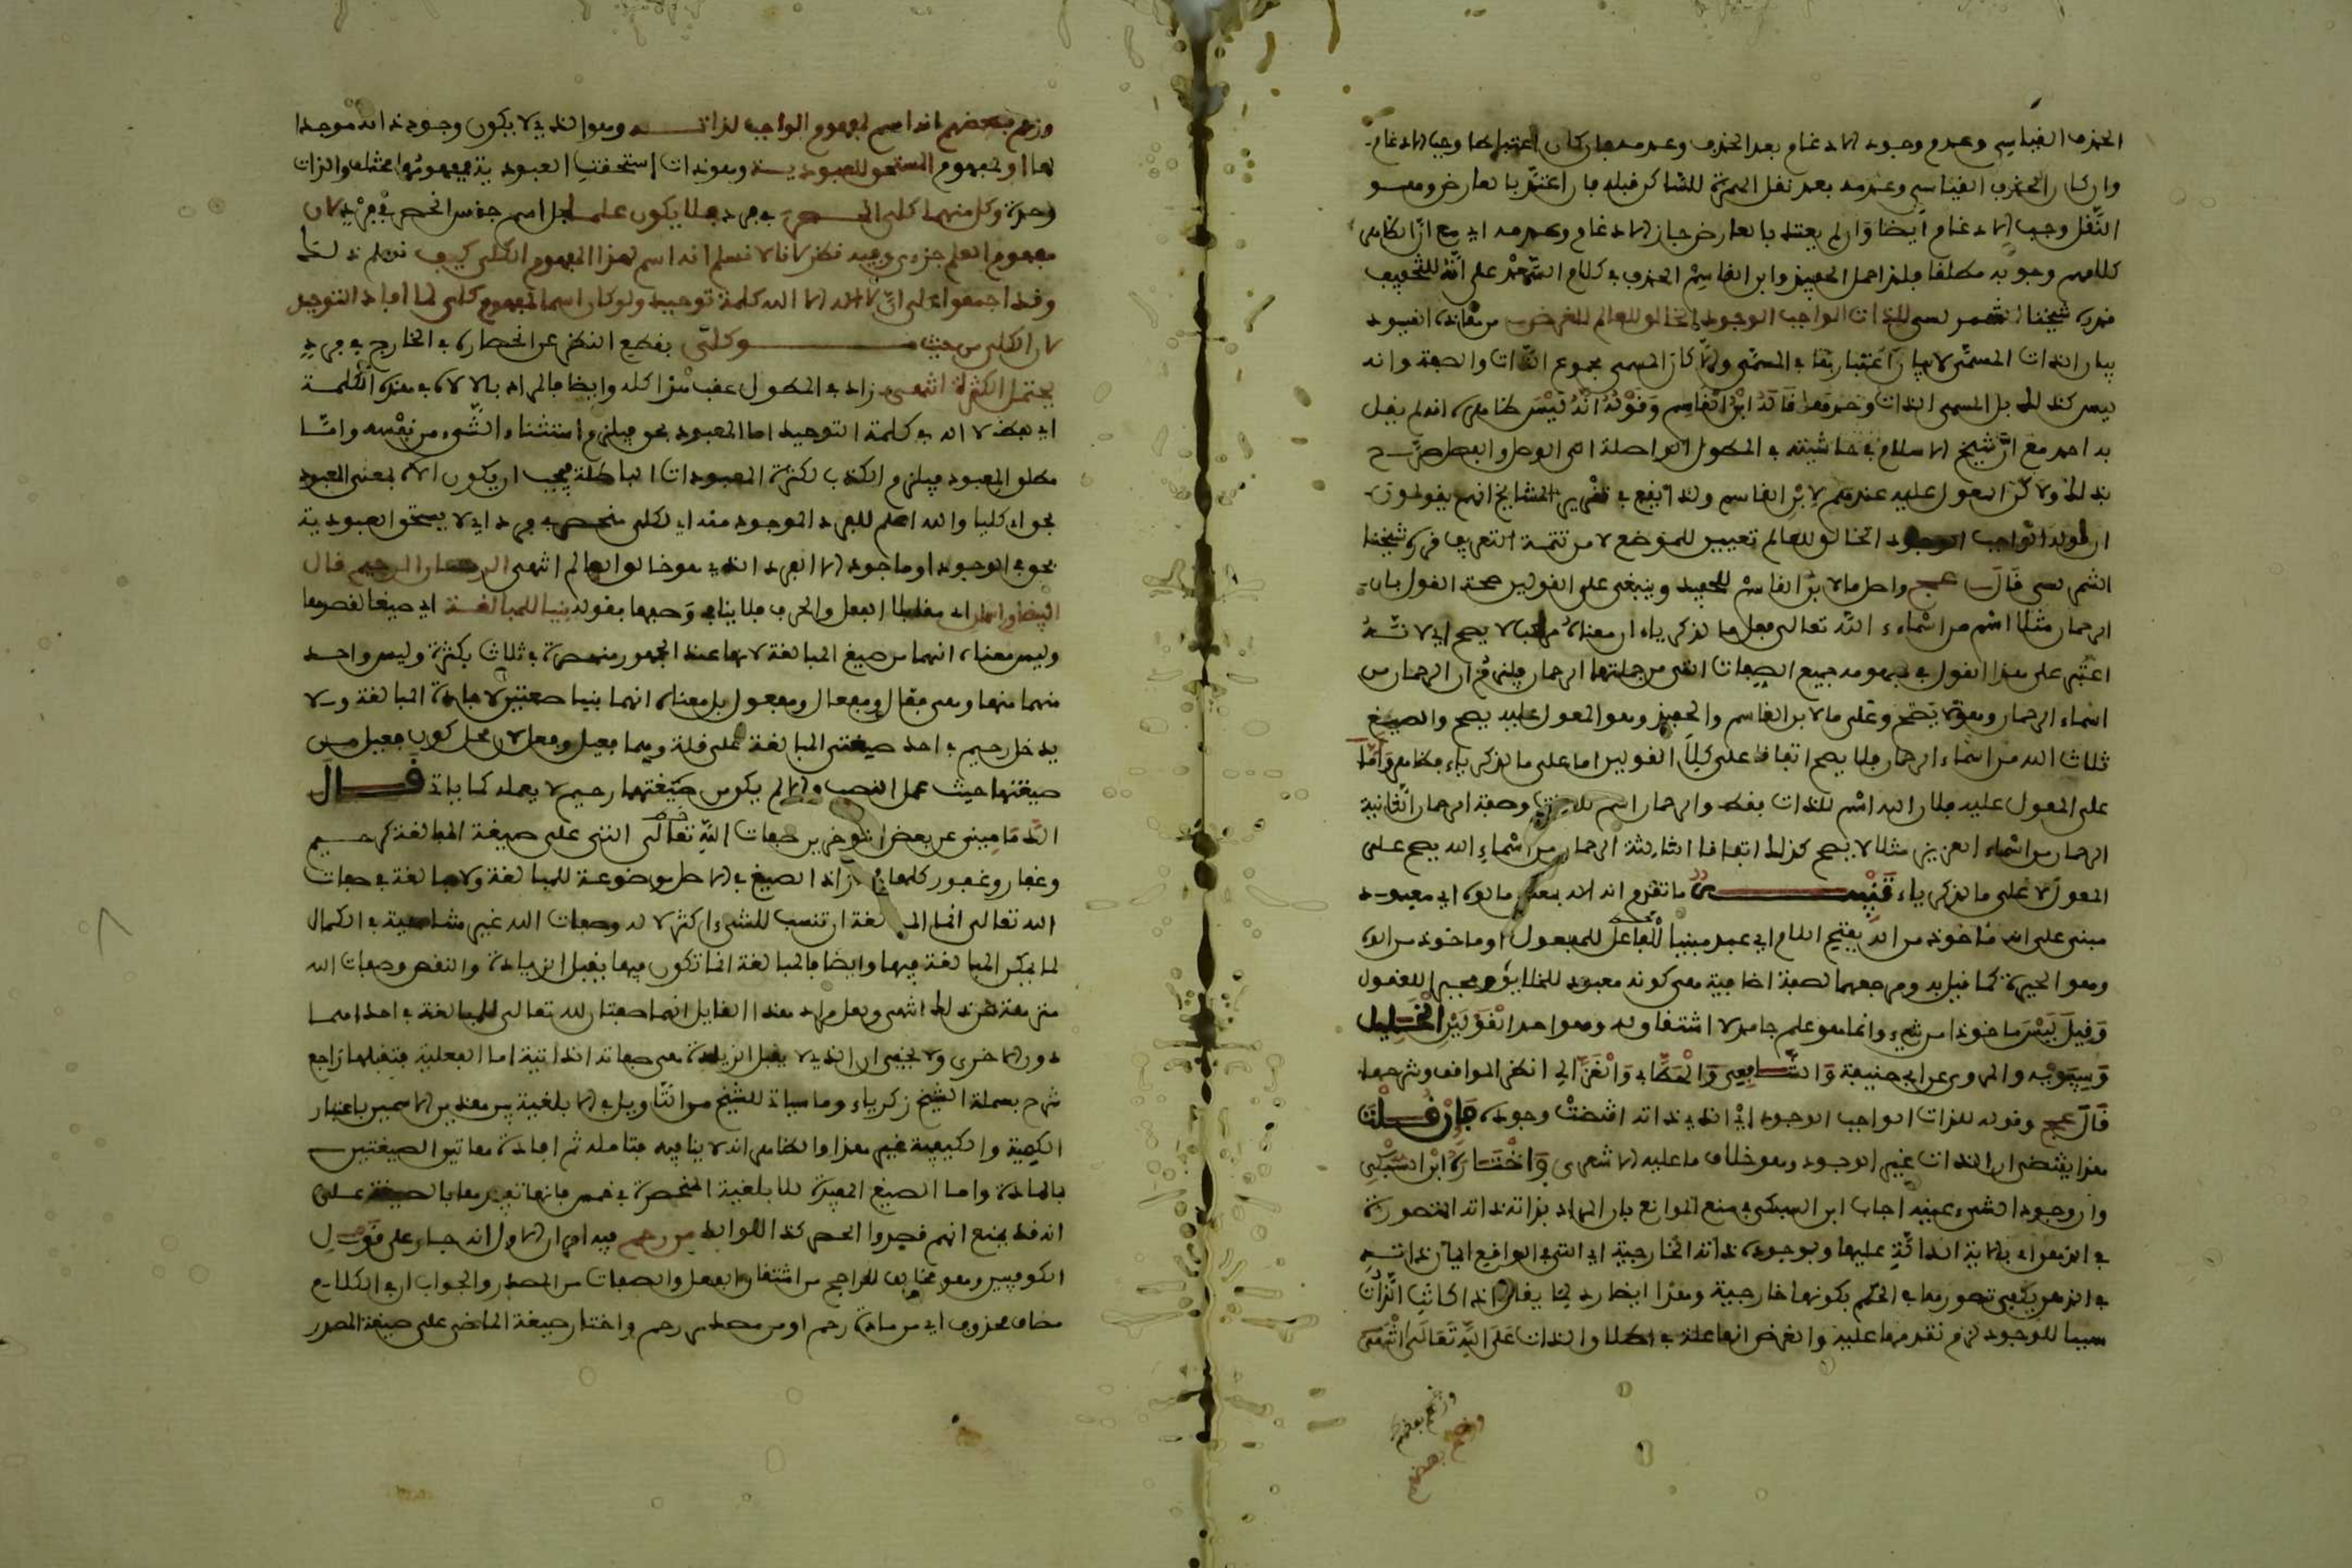 الحذف القياسي وعدم وجود الادغام بعد الحذف وعدمه
وان كان الحذف القياسي وعدمه بعد نقل الحركة للساكن قبله فان اعتد بالعارض وهو
النقل وجب الادغام ايضا وان لم يعتد بالعارض جاز الادغام وعدمه اي مع ان ظاهر
كلامهم وجوبه مطلقا فلذا حمل الحفيد وابن القاسم الحذف في كلام السعد على انه للتخفيف
شيخنا للذات الواجب الوجود الخالق للعالم
بيان الذات المسمى لا بيان اعتبارها في المسمى والا كان المسمى مجموع الذات والصفة وانه
ليس كذلك بل المسمى الذات وحدها قاله ابن القاسم وقوله انه ليس ظاهره انه لم يقل
به احد مع ان شيخ الاسلام في حاشيته في المطول
بذلك ولاكن المعول عليه عندهم لابن القاسم ولذا يقع في تقرير المشايخ انهم يقولون
ان قوله الواجب الوجود الخالق للعالم تعيين للموضع لا من تتمة التعريف قرره شيخنا
قال عج واصل ما لابن القاسم للحفيد وينبغي على القولين صحة القول بان
الرحمان مثلا اسم من اسماء الله تعالى
اعتبر على هذا القول في مفهومه جميع الصفات التي من جملتها الرحمان فيلزم ان الرحمان من
اسماء الرحمان وهو لا يصح وعلى ما لابن القاسم والحفيد وهو المعول عليه يصح والصيغ
ثلاث الله من اسماء الرحمان فلا يصح اتفاقا على كلا القولين اما على ما لزكرياء فظاهر واما
على المعول عليه فلان الله اسم للذات فقط والرحمان اسم وصفة الرحمان الثانية
الرحمان من اسماء العزيز مثلا لا يصح كذلك اتفاقا الثالثة الرحمان من اسماء الله يصح على
المعول لا على ما لزكرياء تنبيه ما تقدم انه الاه بمعنى مالوه اي معبود
مبني على انه ماخوذ من اله بفتح اللام اي عبد مبنيا للفاعل للمفعول او ماخوذ من الوله
وهو الحيرة كما قيل به ومرجعهما لصفة اضافية هي كونه معبود للخلايق ومحير للعقول
وقيل ليس ماخوذا من شيء وانما هو علم جامد لا اشتقاق له وهو احد القولين الخليل
وسيبويه والمروي عن ابي حنيفة والشافعي والخطابي والغزالي انظر المواقف وشرحها
قال عج وقوله للذات الواجب الوجود اي الذي ذاته اقتضت وجوده فان قلت
هذا يقتضي ان الذات غير الوجود وهو خلاف ما عليه الاشعري واختاره ابن السبكي
وان وجود الشيء عينه اجاب ابن السبكي في منع الموانع بان المراد بذاته ذاته المتصورة
في الذهن اي بالاية الدالة عليها وبوجوده ذاته الخارجية اي التي في الواقع
في الذهن يكفي تصورها في الحكم بكونها خارجية وهذا ايضا رد لما يقال اذا كانت الذات
سببا للوجود لزم تقدمها عليه والغرض انها علة في اطلاق الذات على الله تعالى انتهى
وزعم بعضهم
وزعم بعضهم
وزعم بعضهم انه اسم لمفهوم الواجب لذاته وهو الذي لا يكون وجود ذاته موجدا
لها او لمفهوم المستحق للعبودية وهو ذات استحقت العبودية فمفهومهما مختلف والذات
وحدة وكل منهما كلي انحصر في فرد فلا يكون علما بل اسم جنس انحصر في فرد لان
مفهوم العلم جزءي وفيه نظر لانا لا نسلم انه اسم لهذا المفهوم الكلي كيف
وقد اجمعوا على ان لا اله الا الله كلمة توحيد ولو كان اسما لمفهوم كلي لما افاد التوحيد
لان الكلي من حيث هو كلي بقطع النظر عن انحصاره في الخارج في فرد
يحتمل الكثرة انتهى زاد في المطول عقب هذا كله وايضا فالمراد بالالاه في هذه الكلمة
اي لفظ لا اله في كلمة التوحيد اما المعبود بحق فيلزم استثناء الشيء من نفسه واما
مطلق المعبود فيلزم الكذب لكثرة المعبودات الباطلة فيجب ان يكون الاه بمعنى المعبود
بحق اي كليا والله علم للفرد الموجود منه اي لكلي منحصر في فرد اي لا يستحق العبودية
بحق في الوجود او ما جود الا الفرد الذي هو خالق العالم انتهى الرحمان الرحيم قال
اي مقابلا الفعل والحرف فلا ينافي وصفها بقوله بنيا للمبالغة اي صيغا لقصدها
وليس معناه انهما من صيغ المبالغة لانها عند الجمهور منحصرة في ثلاث بكثرة وليس واحد
منهما منها وهي فعال ومفعال ومفعول بل معناه انهما بنيا صفتين لافادة المبالغة ولا
يدخل رحيم في احد صيغتي المبالغة على قلة وهما فعيل وفعل لان محل كون فعيل من
صيغتها حيث عمل النصب والا لم يكن من صيغتها رحيم لا يعمله كما ياتي قال
عن بعض المتاخرين صفات الله تعالى التي على صيغة المبالغة كرحيم
وغفار وغفور كلها مجاز اذ الصيغ في الاصل موضوعة للمبالغة ولا مبالغة في صفات
الله تعالى انما المبالغة ان تنسب للشيء اكثر لا له وصفات الله غير متناهية في الكمال
لا يمكن المبالغة فيها وايضا فالمبالغة انما تكون فيما يقبل الزيادة والنقص وصفات الله
منزهة عن ذلك انتهى ولعل مراد هذا القايل انهما صفتان لله تعالى للمبالغة في احداهما
دون الاخرى ولا يخفى ان الذي لا يقبل الزيادة هي صفاته الذاتية اما الفعلية فتقبلها راجع
شرح بسملة الشيخ زكرياء وما سياتي للشيخ من التاويل في الابلغية بين هذين الاسمين باعتبار
الكمية والكيفية غير هذا والظاهر انه لا ينافيه فتامله ثم افادة هاتين الصيغتين
بالمادة واما الصيغ المفيدة للابلغية المنحصرة في خمس فانها تفيدها بالصيغة على
انه قد يمنع انهم قصدوا الحصر كذا من رحم فيه امران الاول انه جار على قول
الكوفيين وهو مخالف للراجح من اشتقاق الفعل والصفات من المصدر والجواب ان في الكلام
مضاف محذوف اي من مادة رحم او من مصدر رحم واختار صيغة الماضي على صيغة المصدر